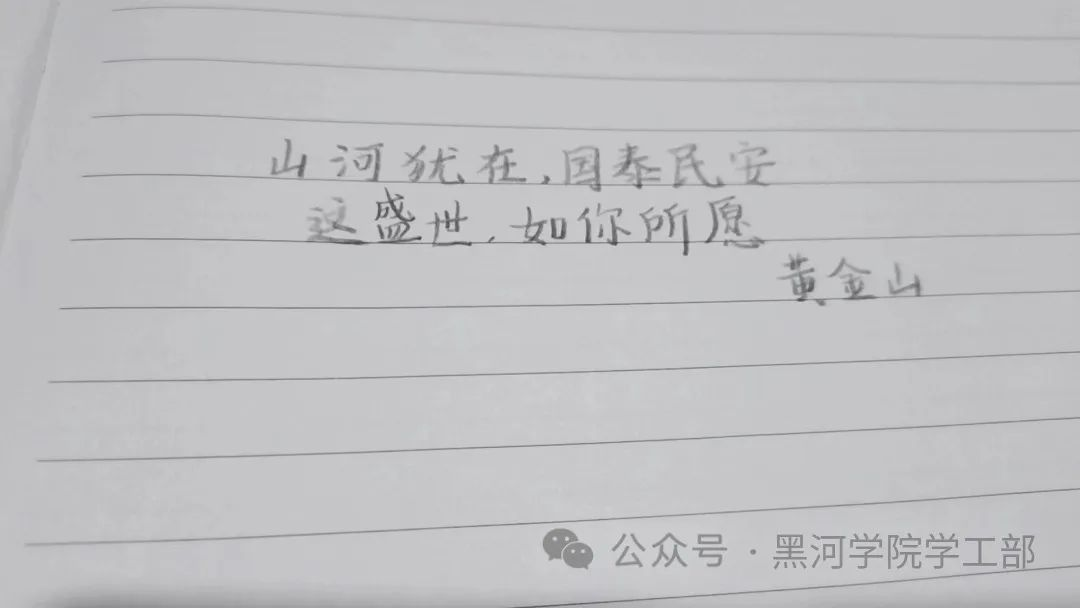 山河犹在,国泰民安
这盛世,如你所愿
黄金山
公众号·黑河学院学工部